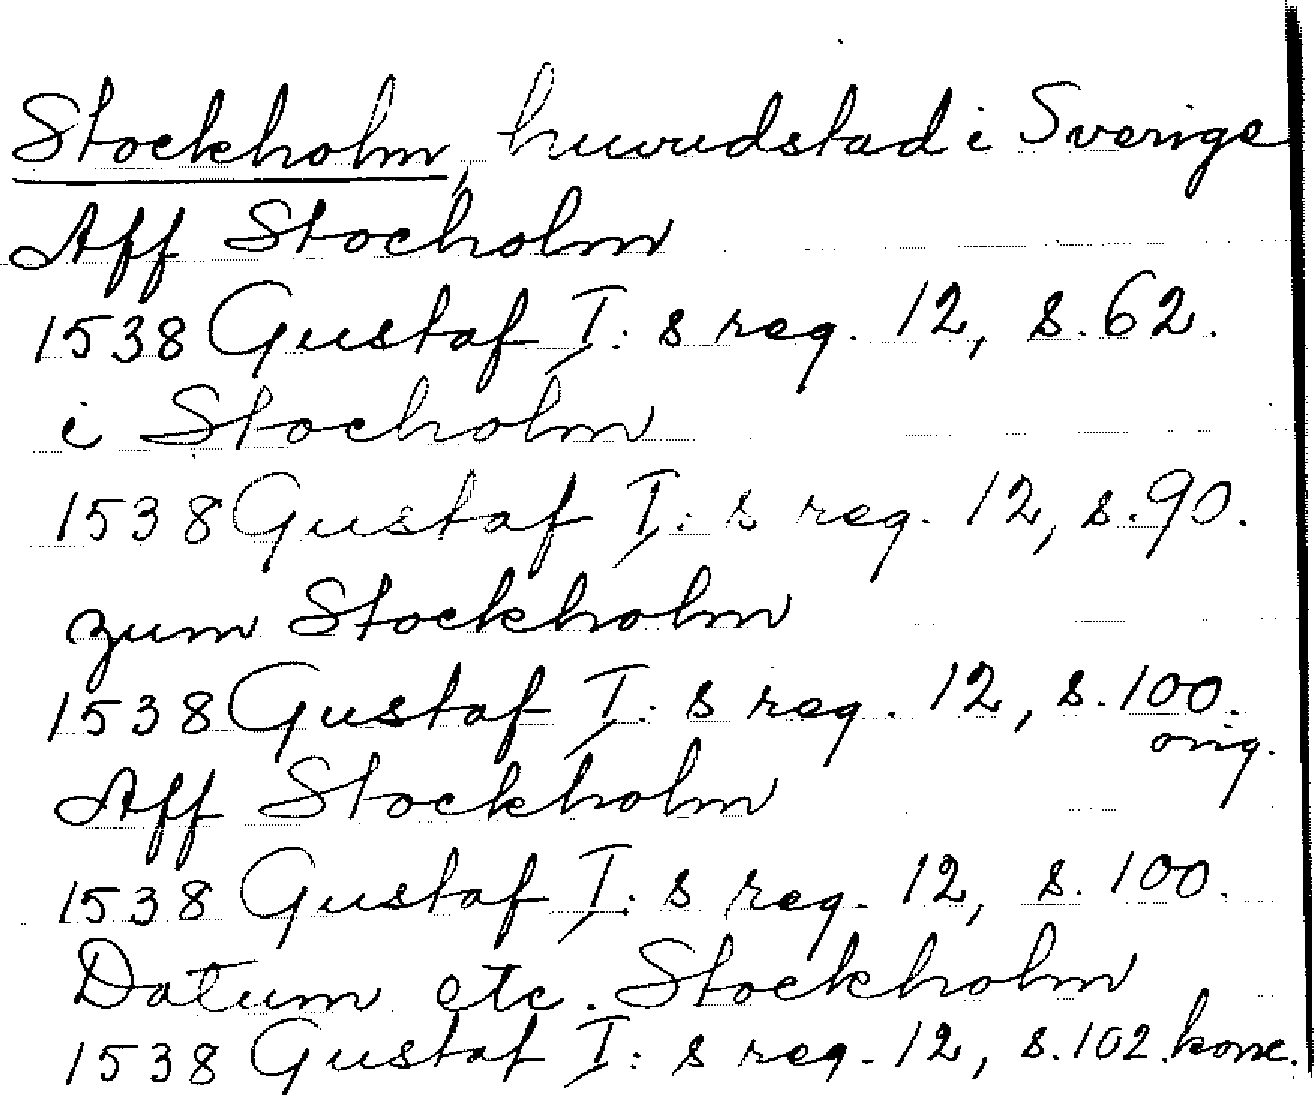 Stockholm, huvudstad i Sverige
Aff Stocholm
1538 Gustaf I:s reg. 12, s. 62.
i Stocholm
1538 Gustaf I:s reg. 12, s. 90.
zum Stockholm
1538 Gustaf I:s reg. 12, s. 100.
orig.
Aff Stockholm
1538 Gustaf I:s reg. 12, s. 100.
Datum etc. Stockholm
1538 Gustaf I:s reg. 12, s. 102. konc.